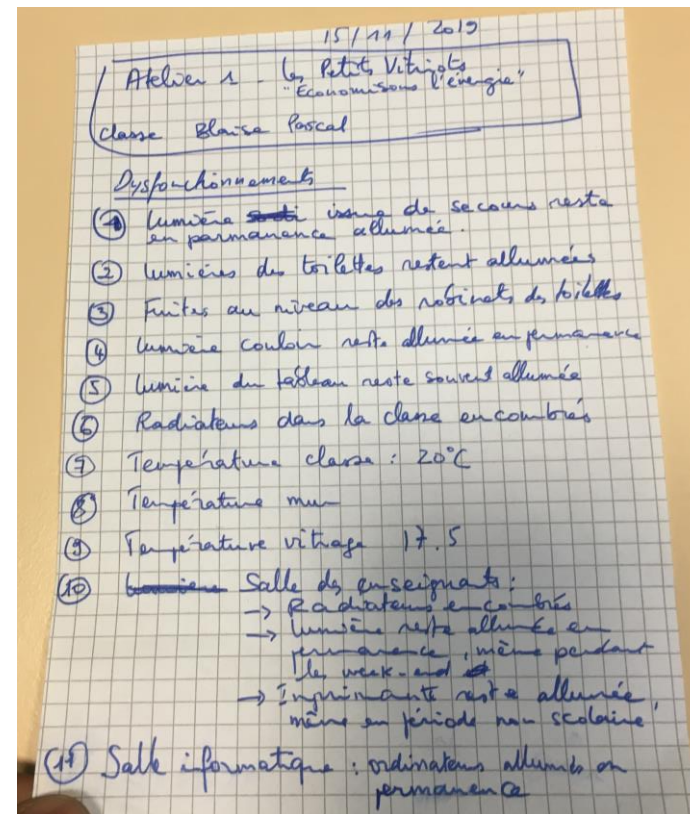 15/11/2019
Atelier 1 - les Petits Vitriots
"Economisons l'énergie"
Classe Blaise Pascal
Dysfonctionnements
① lumière issue de secours reste
en permanence allumée.
② lumières des toilettes restent allumées
③ Fuites au niveau des robinets des toilettes
④ lumière couloir reste allumée en permanence
⑤ lumière du tableau reste souvent allumée
⑥ Radiateurs dans la classe encombrés
⑦ Température classe : 20°C
⑧ Température mur
⑨ Température vitrage 17.5
⑩ Salle des enseignants :
→ Radiateurs encombrés
→ lumière reste allumée en
permanence, même pendant
les week-end
→ Imprimante reste allumée,
même en période non scolaire,
⑪ Salle informatique : ordinateurs allumés en
permanence